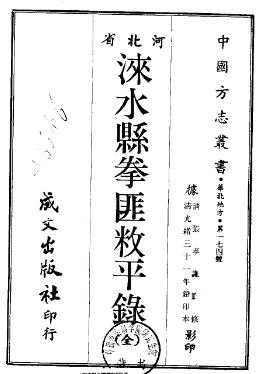 中國方志叢書・華北地方・第一七四號
據
清光緒三十一年鉛印本
影印
河北省
淶水縣拳匪敉平錄
(全)
成文出版社印行